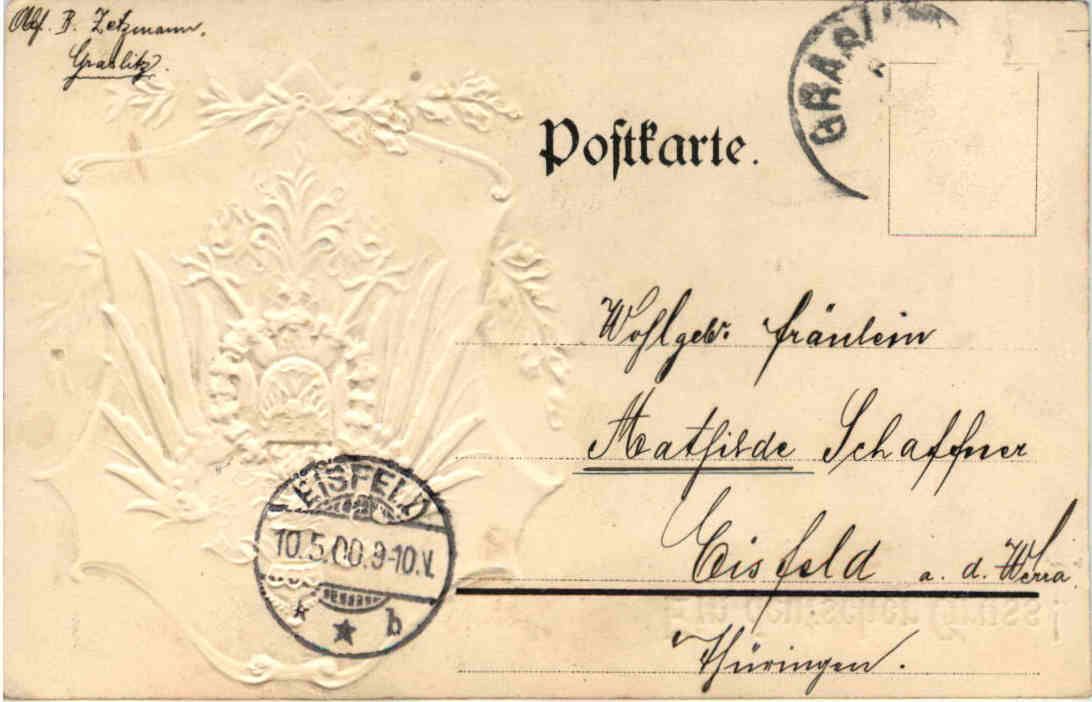 B. Zetzmann,
Graslitz.
GRAS
Postkarte.
Wohlgeb. Fräulein
Mathilde Schaffner
Eisfeld a. d. Werra
Thüringen.
EISFELD
10.5.00.9-10.V.
* * b